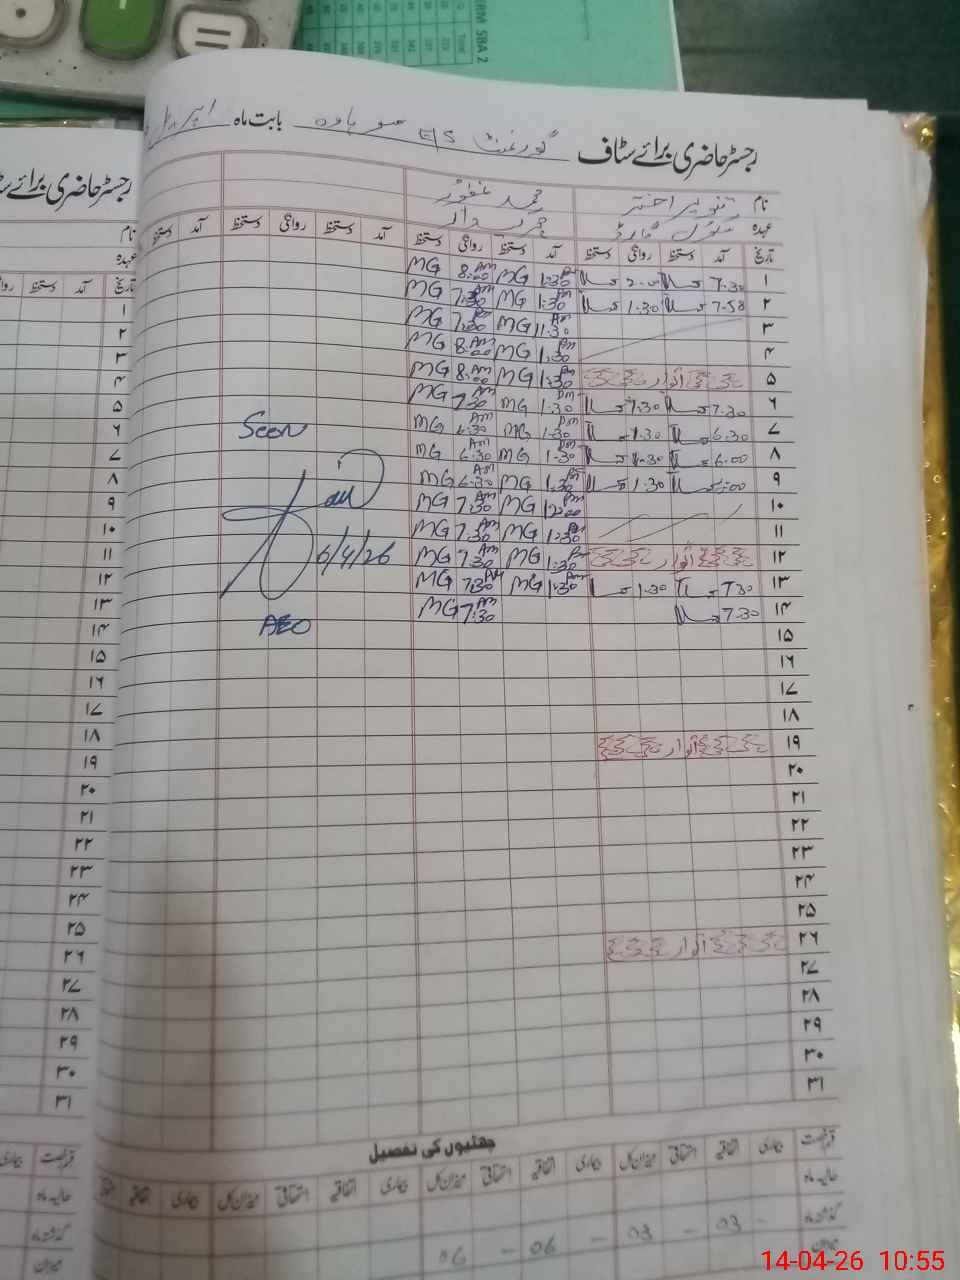 رجسٹر حاضری برائے سٹاف گورنمنٹ E/S بابت ماہ اپریل
نام تنویر اختر محمد غفور
عہدہ سکول گارڈ چوکیدار
تاریخ آمد دستخط روانگی دستخط آمد دستخط روانگی دستخط آمد دستخط روانگی دستخط آمد دستخط
۱ 7.30 2.00 1:30 MG 8:00 Am MG
۲ 7.58 1.30 1:30 MG 7:30 Am MG
۳ 11:30 Am MG 7:30 MG
۴ 1:30 Pm MG 8:00 Am MG
۵ اتوار 1:30 Pm MG 8:00 Am MG
۶ 7.30 1.30 1:30 Pm MG 7:30 Am MG
۷ 6.30 1.30 1:30 Pm MG 6:30 Am MG
۸ 6.00 1.30 1:30 Pm MG 6:30 Am MG
۹ 1.30 1:30 Pm MG 6:30 Am MG
۱۰ 12:00 Pm MG 7:30 Am MG
۱۱ 1:30 Pm MG 7:30 Am MG
۱۲ اتوار 1:30 Pm MG 7:30 Am MG
۱۳ 7.30 1.30 1:30 Pm MG 7:30 AM MG
۱۴ 7.30 7:30 Am MG
۱۵
۱۶
۱۷
۱۸
۱۹ اتوار
۲۰
۲۱
۲۲
۲۳
۲۴
۲۵
۲۶ اتوار
۲۷
۲۸
۲۹
۳۰
۳۱
Seen
6/4/26
AEO
چھٹیوں کی تفصیل
قسم رخصت بیماری اتفاقیہ استحقاقی میزان کل بیماری اتفاقیہ استحقاقی میزان کل بیماری اتفاقیہ استحقاقی میزان کل بیماری اتفاقیہ
حالیہ ماہ
گذشتہ ماہ - 03 - 03 - 06 - 06
میزان
رجسٹر حاضری برائے
نام
عہدہ
تاریخ آمد دستخط
۱
۲
۳
۴
۵
۶
۷
۸
۹
۱۰
۱۱
۱۲
۱۳
۱۴
۱۵
۱۶
۱۷
۱۸
۱۹
۲۰
۲۱
۲۲
۲۳
۲۴
۲۵
۲۶
۲۷
۲۸
۲۹
۳۰
۳۱
قسم رخصت بیماری
حالیہ ماہ
گذشتہ ماہ
میزان
RM SBA 2
14-04-26 10:55